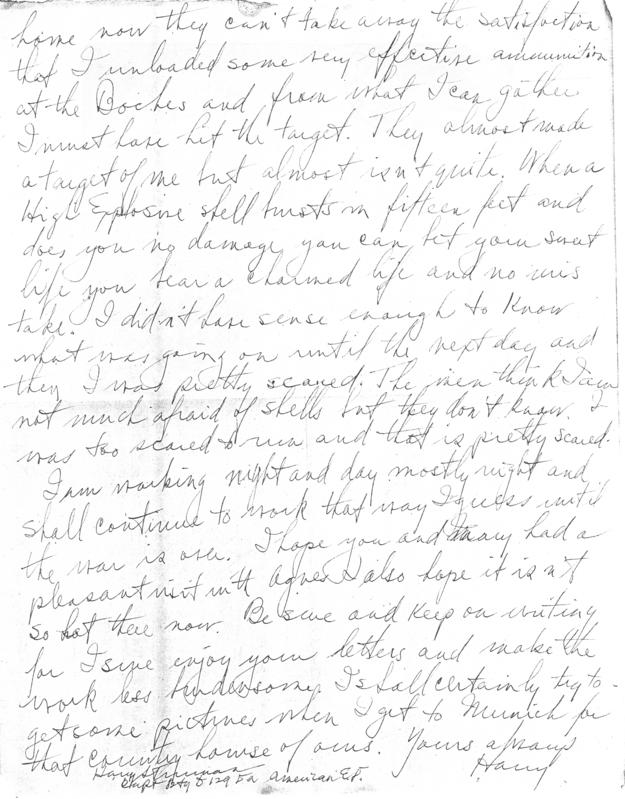 home now they can't take away the satisfaction
that I unloaded some very effective ammunition
at the Boches and from what I can gather
I must have hit the target. They almost made
a target of me but almost isn't quite. When a
High Explosive shell bursts in fifteen feet and
does you no damage, you can bet your sweet
life you bear a charmed life and no mis
take. I didn't have sense enough to know
what was going on until the next day and
then I was pretty scared. The men think I am
not much afraid of shells but they don't know. I
was too scared to run and that is pretty scared.
I am working night and day mostly night and
shall continue to work that way I guess until
the war is over. I hope you and Mary had a
pleasant visit with Agnes I also hope it isn't
so hot there now. Be sure and keep on writing
for I sure enjoy your letters and make the
work less burdensome. I shall certainly try to
get some pictures when I get to Munich for
that country house of ours. Yours always
Harry
Harry S Truman
Capt Btry D 129 FA American E.F.